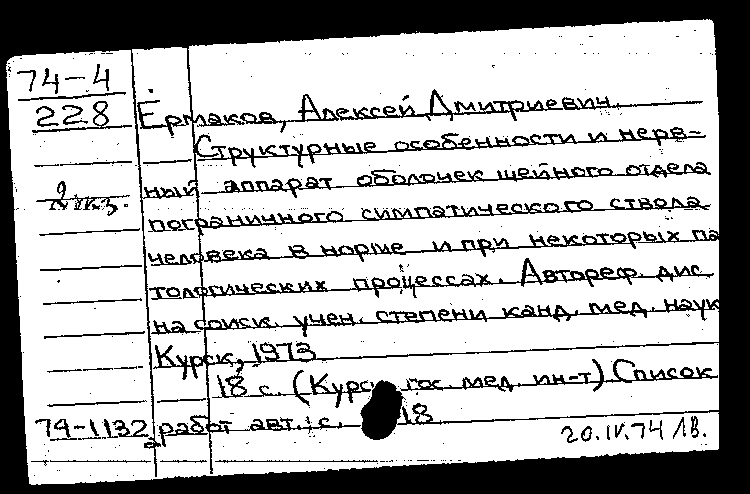 74-4
228
Ермаков, Алексей Дмитриевич.
Структурные особенности и нерв-
2 экз.
ный аппарат оболочек шейного отдела
пограничного симпатического ствола
человека в норме и при некоторых па
тологических процессах. Автореф. дис
на соиск. учен. степени канд. мед. наук
Курск, 1973
18 с. (Курс гос. мед. ин-т) Список
74-1132 работ авт.: с. 18
20.IV.74 ЛВ.